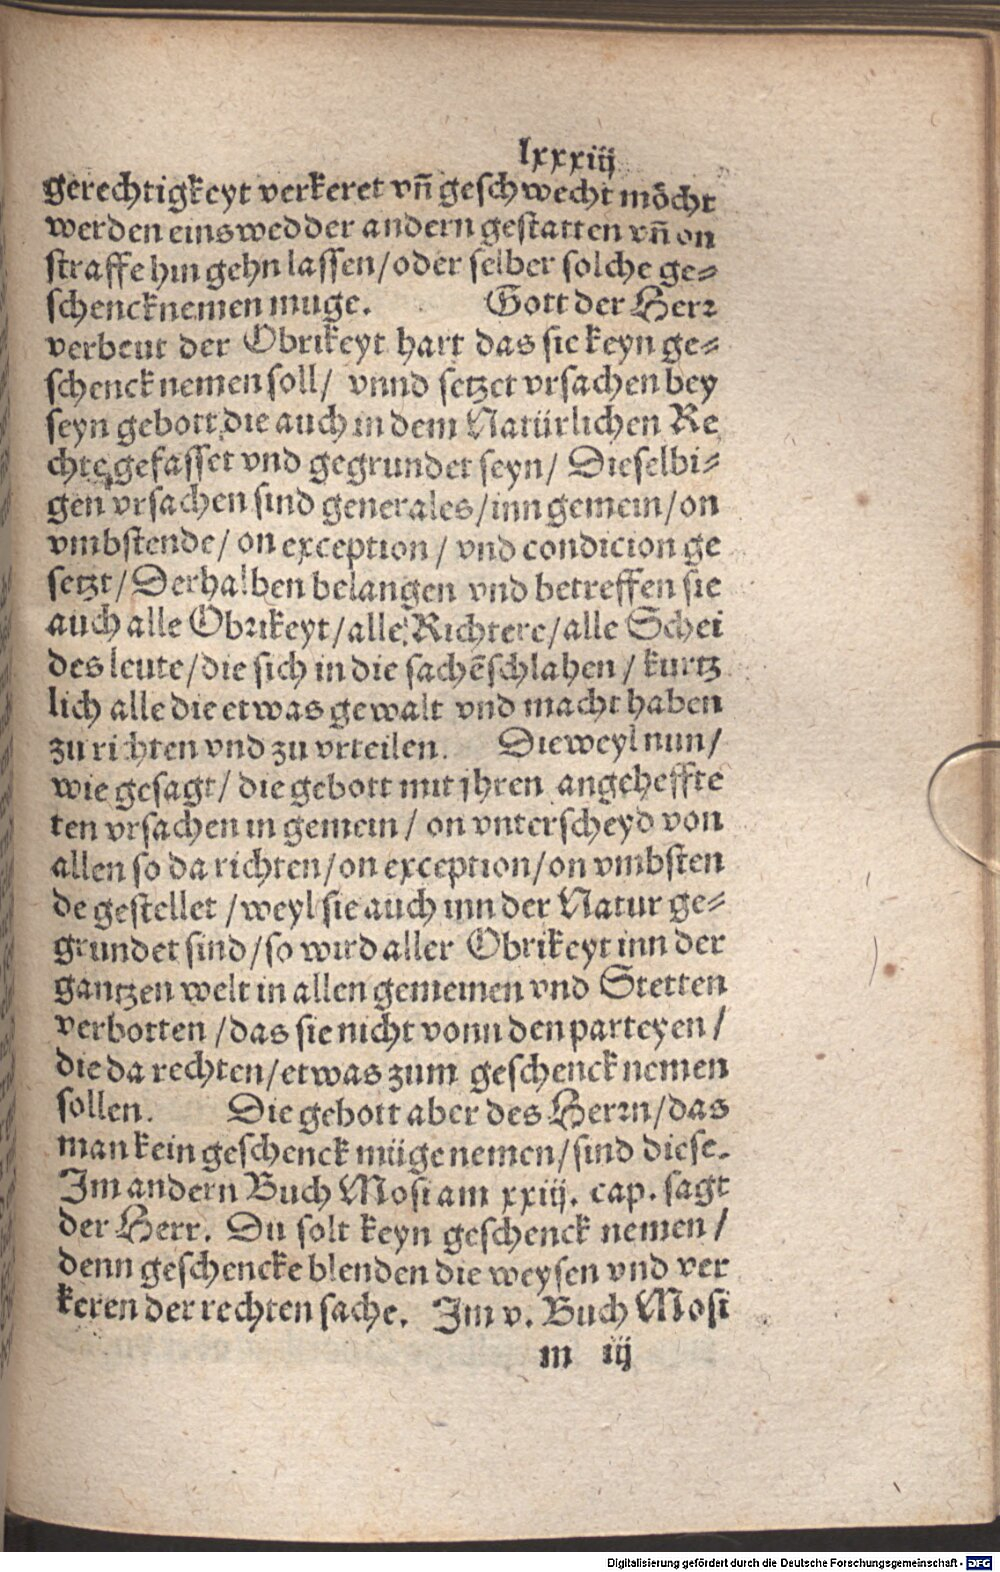 lxxxiij
gerechtigkeyt verkeret vñ geschwecht möcht
werden eins wedder andern gestatten vñ on
straffe hin gehn lassen/oder selber solche ge⸗
schenck nemen muge. Gott der Herr
verbeut der Obrikeyt hart das sie keyn ge⸗
schenck nemen soll/ vnnd setzet vrsachen bey
seyn gebott die auch in dem Natürlichen Re
chte gefasset vnd gegrundet seyn/ Dieselbi⸗
gen vrsachen sind generales/inn gemein/on
vmbstende/ on exception/ vnd condicion ge
setzt/Derhalben belangen vnd betreffen sie
auch alle Obrikeyt/alle Richtere/alle Schei
des leute/die sich in die sachẽ schlahen/ kurtz
lich alle die etwas gewalt vnd macht haben
zu richten vnd zu vrteilen. Dieweyl nun/
wie gesagt/ die gebott mit jhren angeheffte
ten vrsachen in gemein/ on vnterscheyd von
allen so da richten/on exception/on vmbsten
de gestellet/weyl sie auch inn der Natur ge⸗
grundet sind/so wird aller Obrikeyt inn der
gantzen welt in allen gemeinen vnd Stetten
verbotten/das sie nicht vonn den parteyen/
die da rechten/etwas zum geschenck nemen
sollen. Die gebott aber des Herrn/das
man kein geschenck müge nemen/sind diese.
Im andern Buch Mosi am xxiij. cap. sagt
der Herr. Du solt keyn geschenck nemen/
denn geschencke blenden die weysen vnd ver
keren der rechten sache. Im v. Buch Mosi
m iij
Digitalisierung gefördert durch die Deutsche Forschungsgemeinschaft - DFG